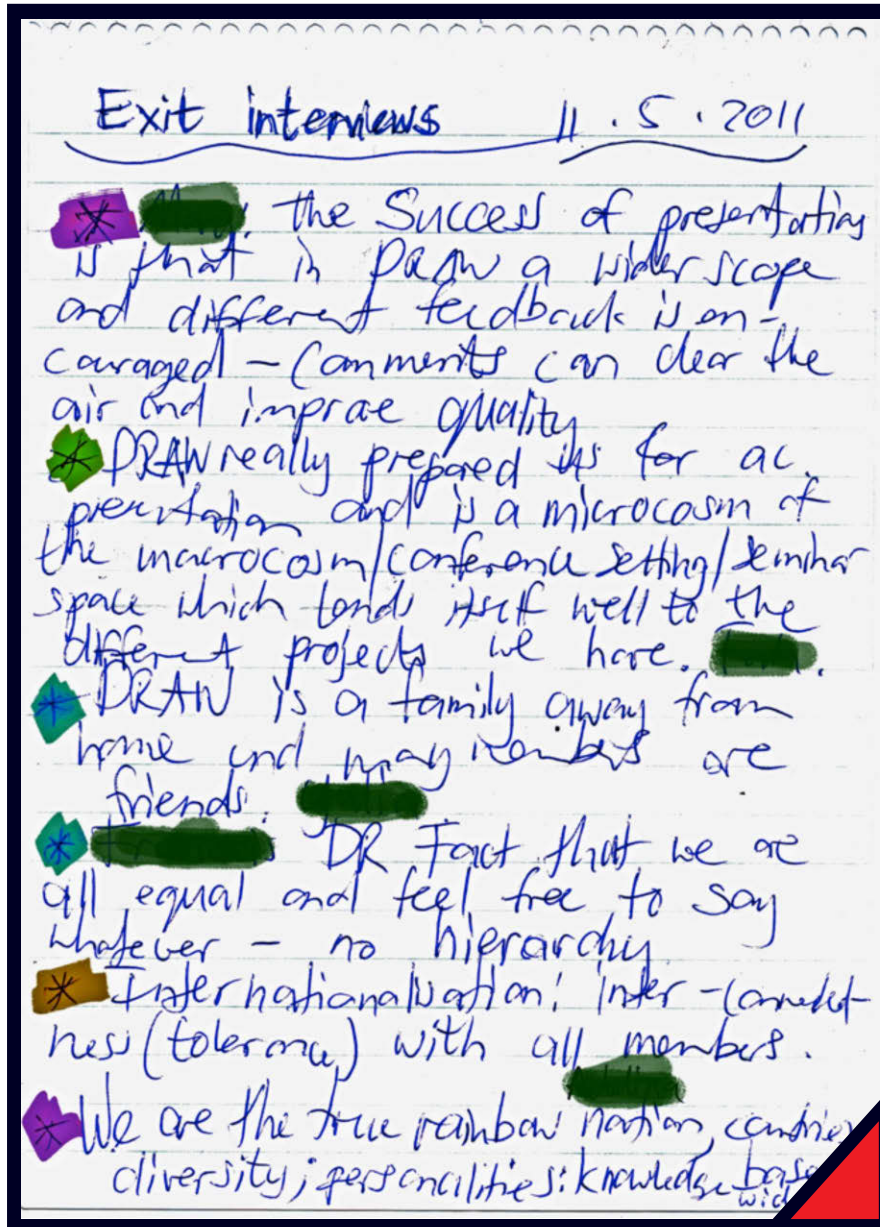 Exit interviews 11.5.2011
the Success of presentation
is that in DRAW a wider scope
and different feedback is en-
couraged - Comments can clear the
air and improve quality
DRAW really prepared us for ac.
presentation and is a microcosm of
the macrocosm/conference setting/seminar
space which lends itself well to the
different projects we have.
DRAW is a family away from
home and many members are
friends.
DR Fact that we are
all equal and feel free to say
whatever - no hierarchy
Internationalisation! Inter-connected-
ness (tolerance) with all members.
We are the true rainbow nation, countries
diversity; personalities: knowledge base
wide